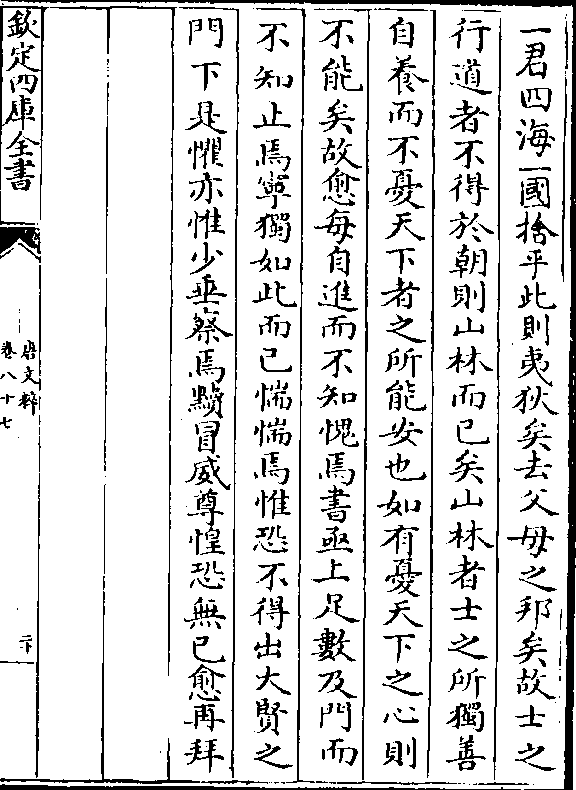 一君四海一國捨乎此則夷狄矣去父母之邦矣故士之
行道者不得於朝則山林而已矣山林者士之所獨善
自養而不憂天下者之所能安也如有憂天下之心則
不能矣故愈每自進而不知愧焉書亟上足數及門而
不知止焉寧獨如此而已惴惴焉惟恐不得出大賢之
門下是懼亦惟少垂察焉黷冒威尊惶恐無已愈再拜
欽定四庫全書
唐文粹
卷八十七
二十